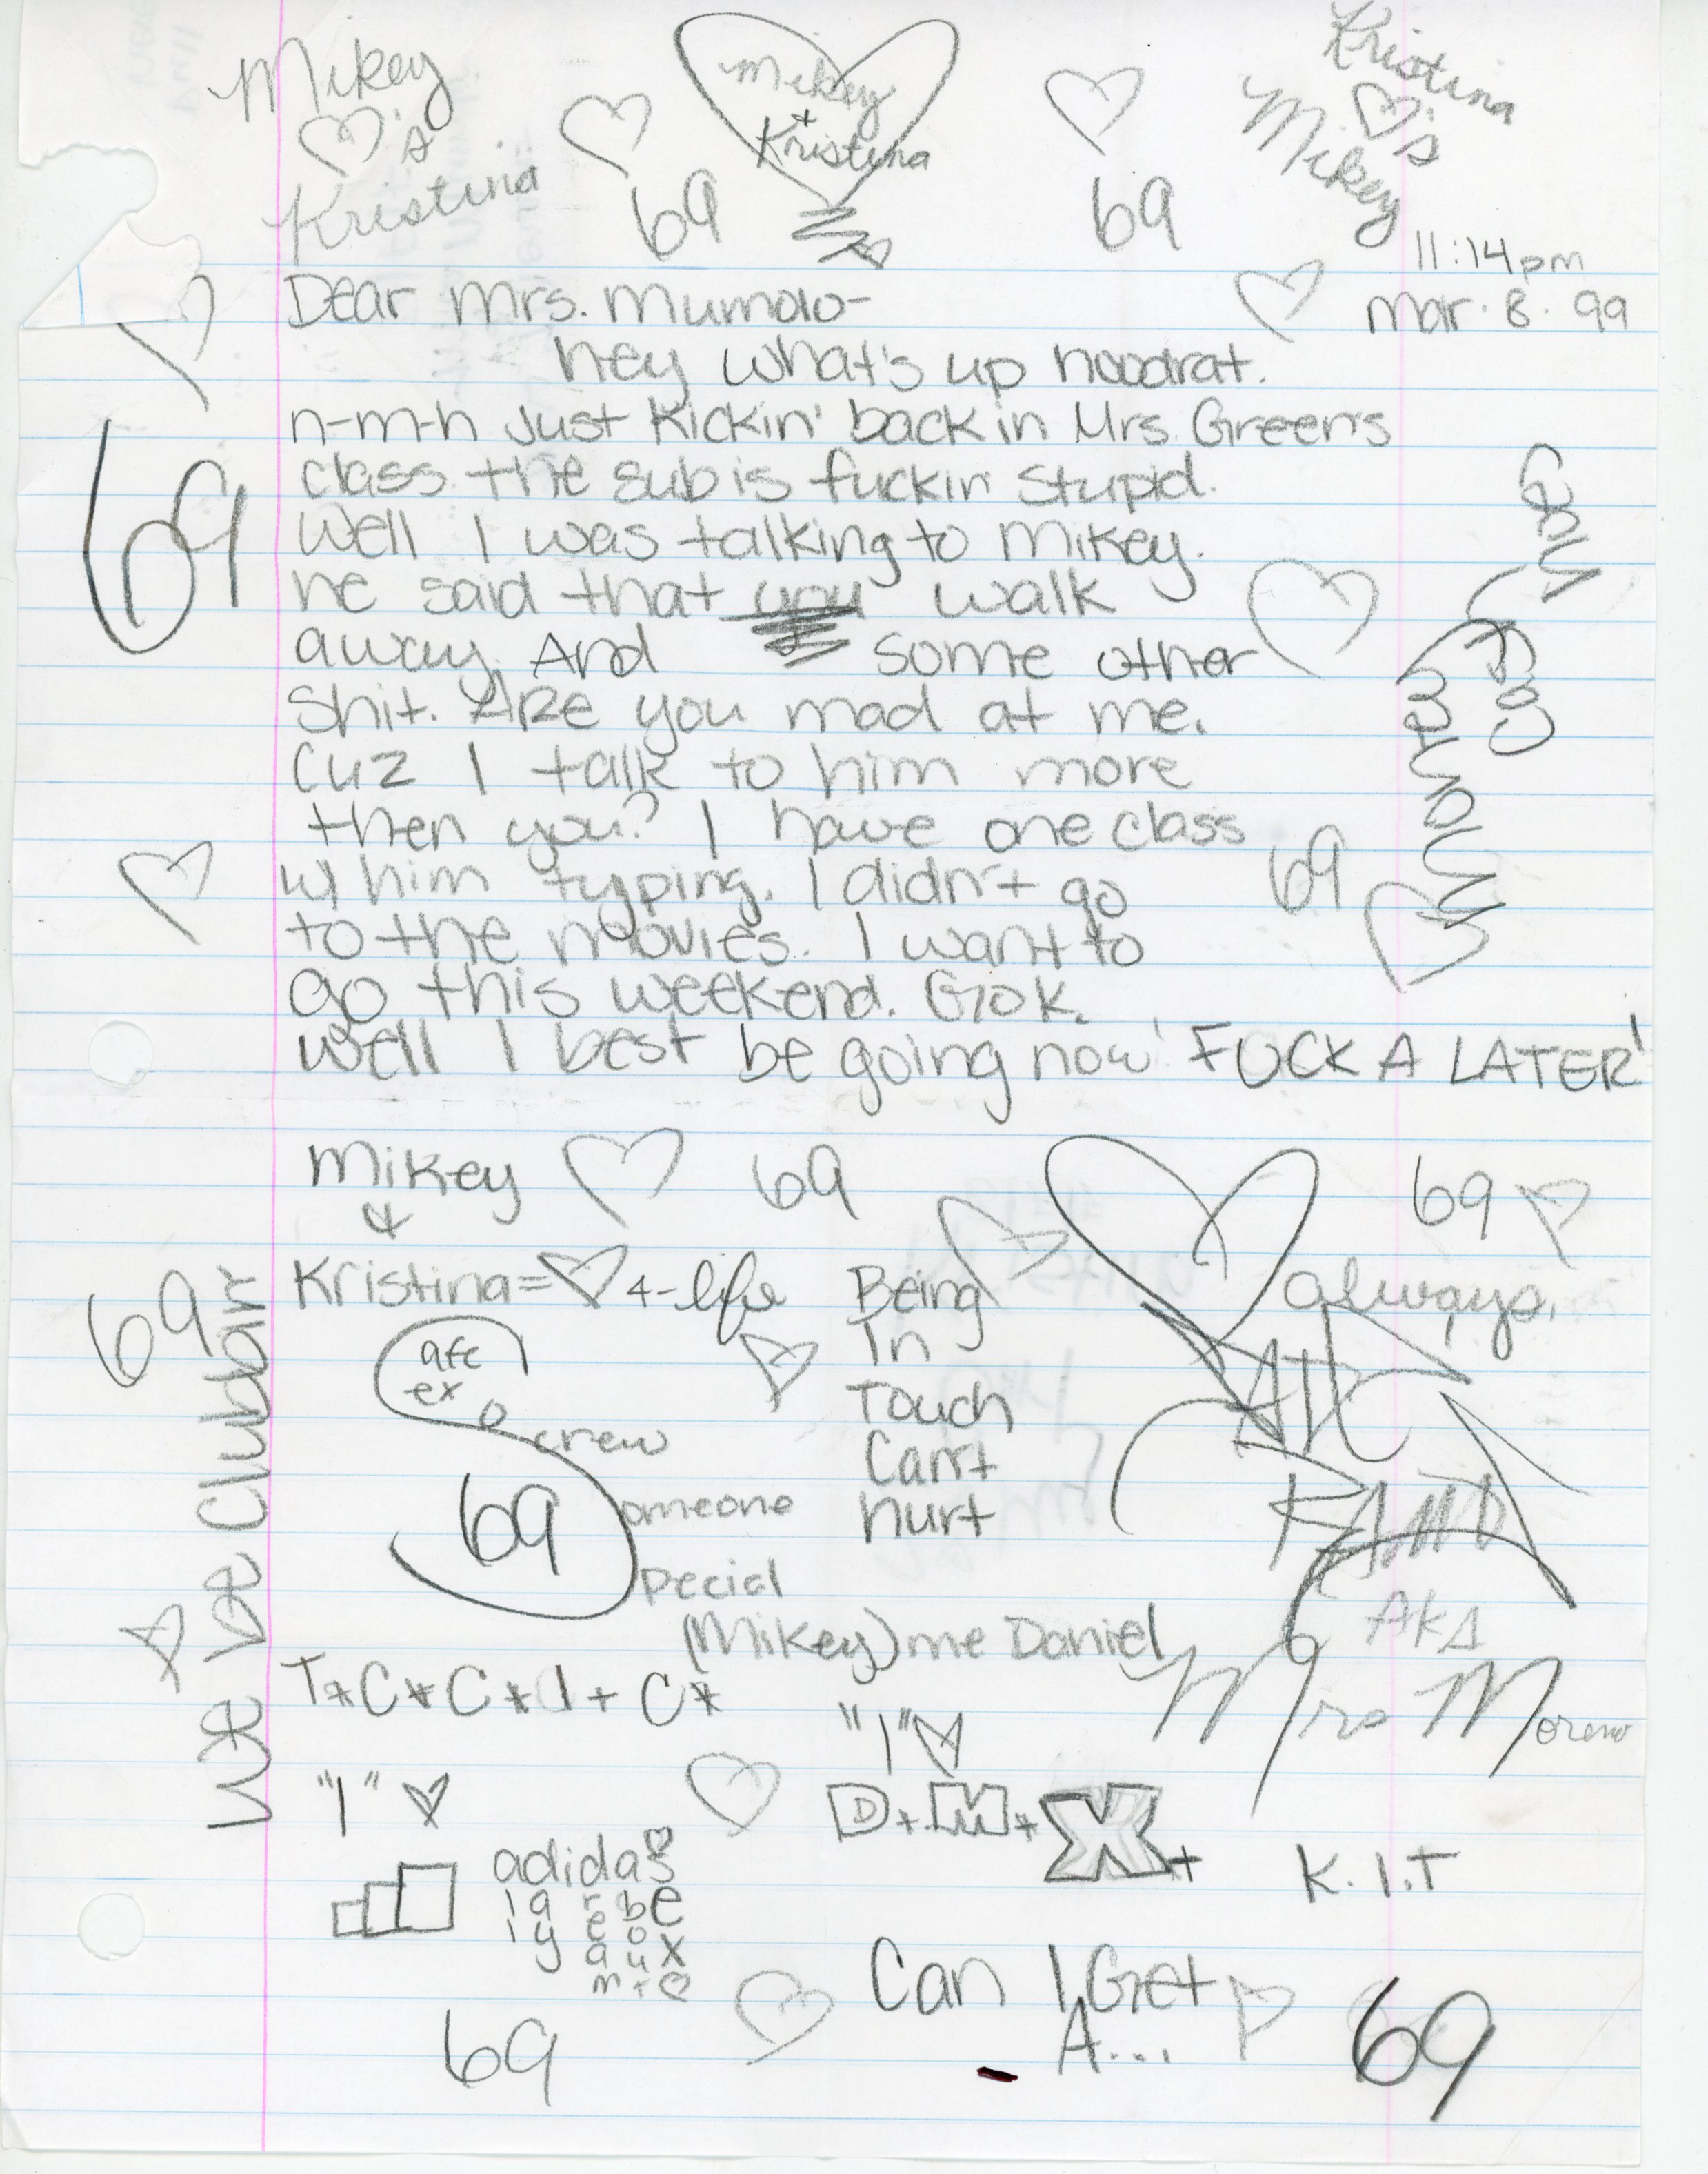 Mikey
♡'s
Kristina
69
Mikey
+
Kristina
69
Kristina
♡'s
Mikey
11:14pm
Mar. 8. 99
Dear Mrs. Mumolo-
hey what's up hoodrat.
n-m-h Just Kickin' back in Mrs. Green's
class. the sub is fuckin stupid.
Well I was talking to Mikey.
he said that you walk
away. And some other
shit. ARe you mad at me.
Cuz I talk to him more
then you? I have one class
w/ him typing. I didn't go
to the movies. I want to
go this weekend. GOK.
Well I best be going now! FUCK A LATER!
69
69
Mikey
&
Kristina = ♡ 4-life
69
69
always,
69
We Be Clubbin'
are
ex
crew
69
omeone
pecial
Being
In
Touch
Can't
hurt
(Mikey) me Daniel
AKA
Mrs Moreno
T*C*C*I+C*
"1" ♡
"1" ♡
D+M+X+
adidas
K.I.T
Can I Get
A...
69
69